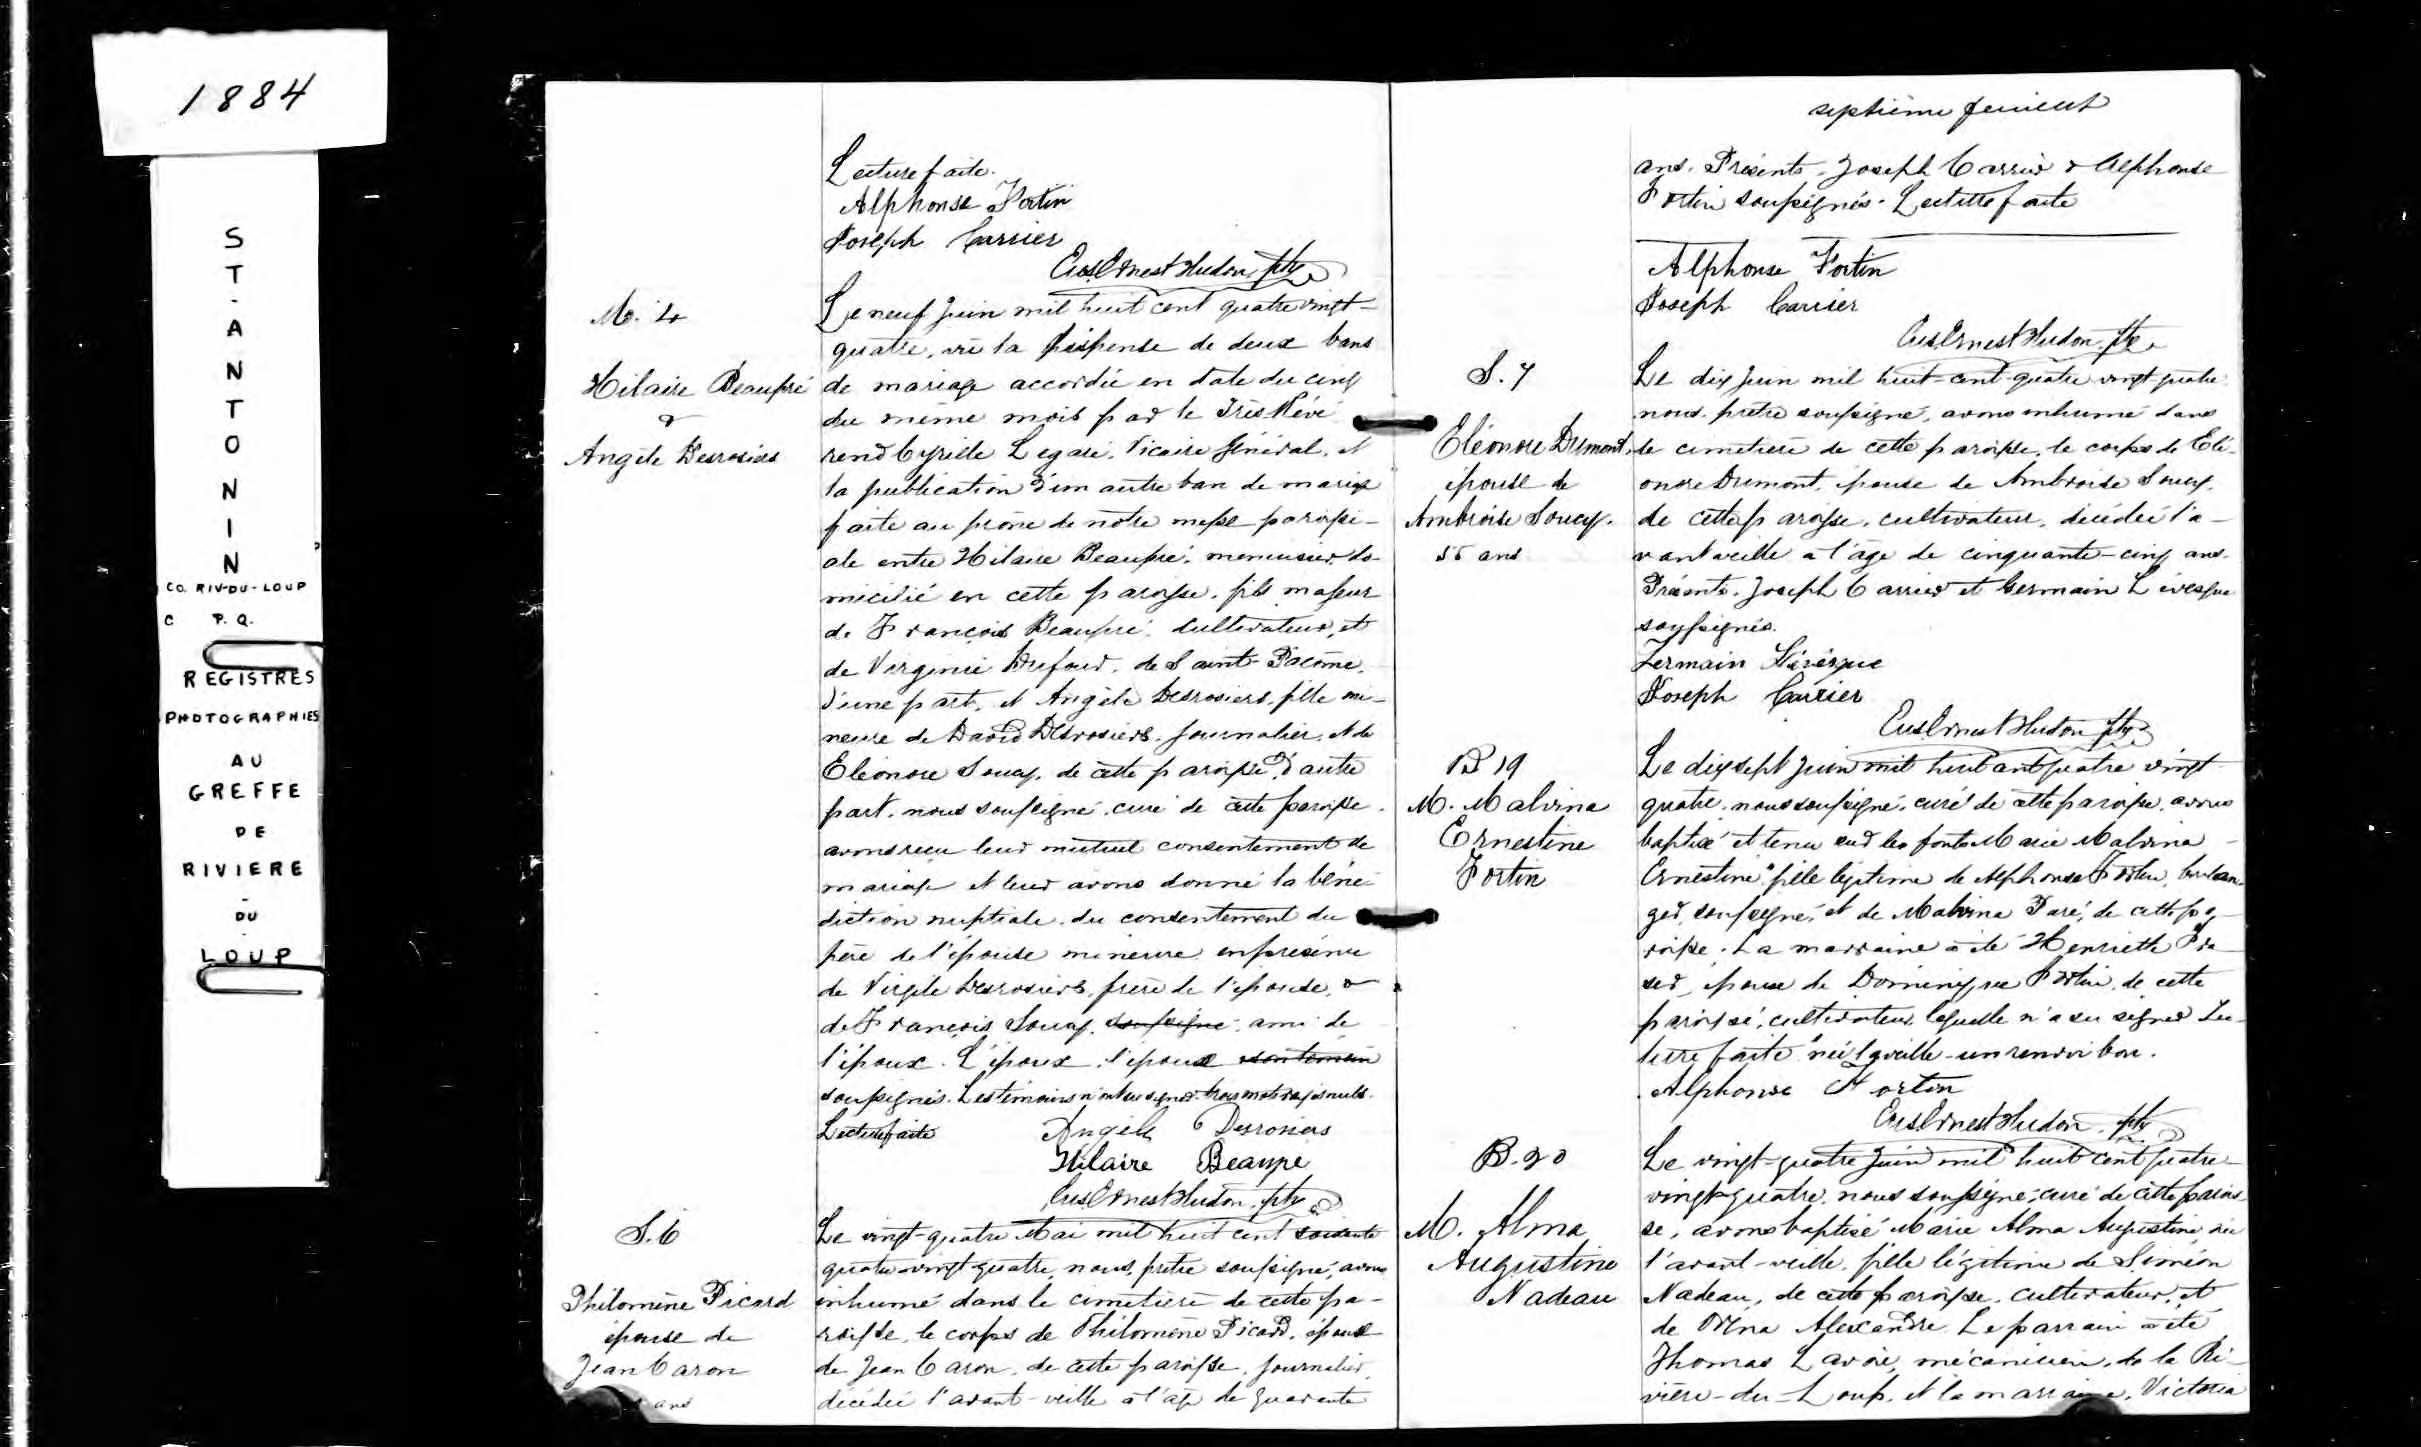 1884
ST-ANTONIN
CO. RIV-DU-LOUP
C P.Q.
REGISTRES
PHOTOGRAPHIES
AU
GREFFE
DE
RIVIERE
-
DU
-
LOUP
Lecture faite.
Alphonse Fortin
Joseph Carrier
Eus Ernest Hudon, ptre
M. 4
Hilaire Beaupré
&
Angèle Desrosiers
Le neuf juin mil huit cent quatre vingt-
quatre, vu la dispense de deux bans
de mariage accordée en date du cinq
du même mois par le Très Révé
rend Cyrille Légaré, Vicaire Général, et
la publication d'un autre ban de mariage
faite au prône de notre messe paroissi-
ale entre Hilaire Beaupré, menuisier, do-
micilié en cette paroisse, fils majeur
de François Beaupré, cultivateur, et
de Virginie Dufour, de Saint-Pacôme,
d'une part, et Angèle Desrosiers, fille mi-
neure de David Desrosiers, journalier, et de
Eléonore Soucy, de cette paroisse d'autre
part, nous soussigné, curé de cette paroisse
avons reçu leur mutuel consentement de
mariage et leur avons donné la béné-
diction nuptiale du consentement du
père de l'épouse mineure en présence
de Virgile Desrosiers, frère de l'épouse, &
de François Soucy, soussigné, ami de
l'époux. L'époux, l'épouse
soussignés. Les témoins n'ont su signer. trois mots rayés nuls.
Lecture faite
Angèle Desrosiers
Hilaire Beaupe
Eus Ernest Hudon, ptre
S. 6
Philomène Picard
épouse de
Jean Caron
ans
Le vingt-quatre Mai mil huit cent soixante
quatre vingt quatre, nous, prêtre soussigné, avons
inhumé dans le cimetière de cette pa-
roisse, le corps de Philomène Picard, épouse
de Jean Caron, de cette paroisse, journalier,
décédée l'avant-veille à l'âge de quarante
septième feuillet
ans. Présents, Joseph Carrier & Alphonse
Fortin soussignés. Lecture faite
Alphonse Fortin
Joseph Carrier
Eus Ernest Hudon, ptre
S. 7
Eléonore Dumont,
épouse de
Ambroise Soucy.
55 ans
Le dix juin mil huit-cent-quatre vingt-quatre
nous, prêtre soussigné, avons inhumé dans
le cimetière de cette paroisse, le corps de Elé-
onore Dumont, épouse de Ambroise Soucy,
de cette paroisse, cultivateur, décédée l'a-
vant veille à l'âge de cinquante-cinq ans.
Présents, Joseph Carrier et Germain Lévesque
soussignés.
Germain Lévésque
Joseph Carrier
Eus Ernest Hudon ptre
B 19
M. Malvina
Ernestine
Fortin
Le dix sept juin mil huit cent quatre vingt
quatre, nous soussigné, curé de cette paroisse, avons
baptisé et tenu sur les fonts Marie Malvina
Ernestine fille légitime de Alphonse Fortin, boulan-
ger, soussigné, et de Malvina Paré, de cette pa-
roisse. La marraine a été Henriette Fra
ser, épouse de Dominique Fortin, de cette
paroisse, cultivateur, laquelle n'a su signer Lec-
ture faite née la veille - un renvoi bon.
Alphonse Fortin
Eus Ernest Hudon, ptre
B. 20
M. Alma
Augustine
Nadeau
Le vingt-quatre juin mil huit cent quatre-
vingt quatre, nous soussigné, curé de cette parois-
se, avons baptisé Marie Alma Augustine, née
l'avant-veille, fille légitime de Siméon
Nadeau, de cette paroisse, cultivateur, et
de Alexandre. Le parrain a été
Thomas Lavoie, mécanicien, de la Ri-
vière-du-Loup, et la marraine, Victoria